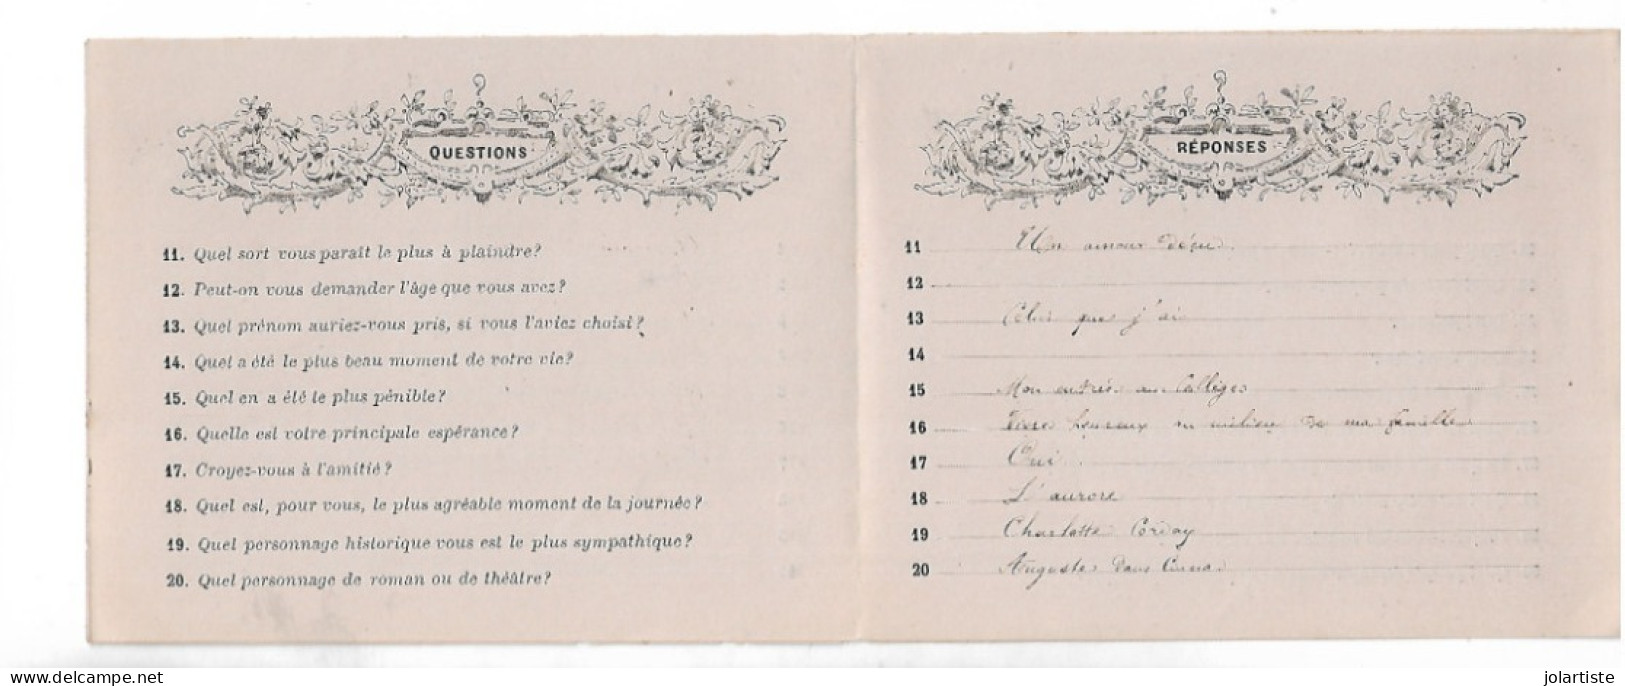 QUESTIONS
11. Quel sort vous paraît le plus à plaindre?
12. Peut-on vous demander l'âge que vous avez?
13. Quel prénom auriez-vous pris, si vous l'aviez choisi?
14. Quel a été le plus beau moment de votre vie?
15. Quel en a été le plus pénible?
16. Quelle est votre principale espérance?
17. Croyez-vous à l'amitié?
18. Quel est, pour vous, le plus agréable moment de la journée?
19. Quel personnage historique vous est le plus sympathique?
20. Quel personnage de roman ou de théâtre?
RÉPONSES
11 Un amour déçu
12
13 Celui que j'ai
14
15 Mon entrée au Collège
16 Vivre heureux au milieu de ma famille
17 Oui
18 L'aurore
19 Charlotte Corday
20 Auguste dans Cinna
www.delcampe.net
jolartiste